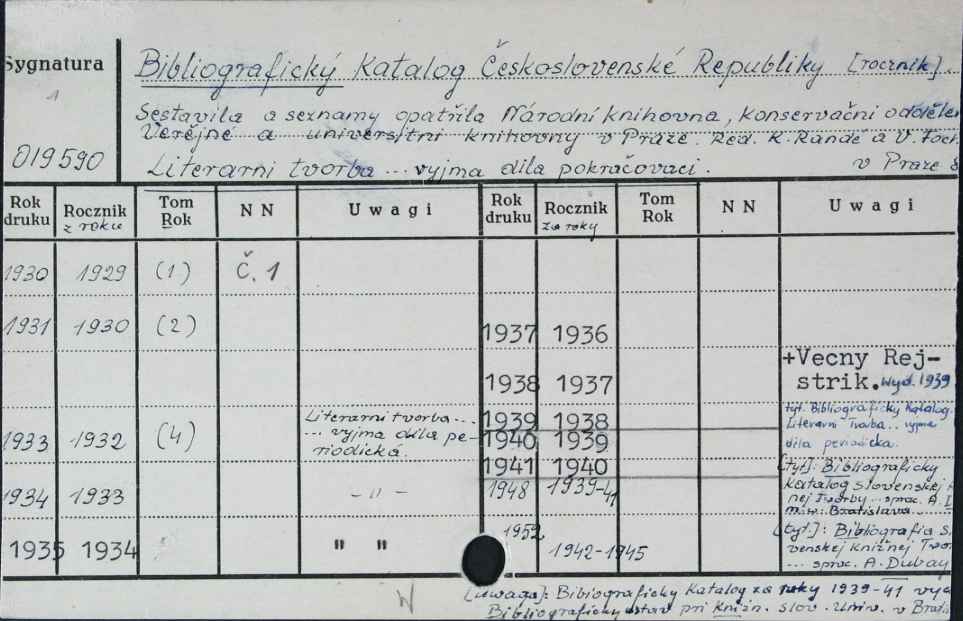 Sygnatura
019590
Bibliografický Katalog Československé Republiky [rocznik].
Sestavila a seznamy opatřila Národní knihovna, konservační oddělen
Veřejné a universitní knihovny v Praze. Red. K. Randé a V.
Literarni tvorba ... vyjma díla pokračovací. v Praze
Rok druku Rocznik z roku Tom Rok N N Uwagi Rok druku Rocznik za roky Tom Rok N N Uwagi
1930 1929 (1) Č. 1
1931 1930 (2) 1937 1936
+Vecny Rej-
1938 1937 strik. Wyd. 1939
1939 1938 tyt. Bibliograficky Katalog.
1933 1932 (4) Literarni tvorba ... 1940 1939 Literarni tvorba .. vyjma
... vyjma díla pe- díla periodicka.
riodická.
1941 1940 [tyt]: Bibliograficky
1934 1933 – " – 1948 1939-41 Katalog slovenskej
nej Tvorby ... sprac. A. D
Bratislava
1952 [tyt.]: Bibliografia S
1935 1934 " " 1942-1945 venskej knižnej Tvor
... sprac. A. Dubay
[uwaga]: Bibiograficky Katalog za roky 1939-41
Bibliograficky ustav pri Knižn. slov. Univ. v Bratis